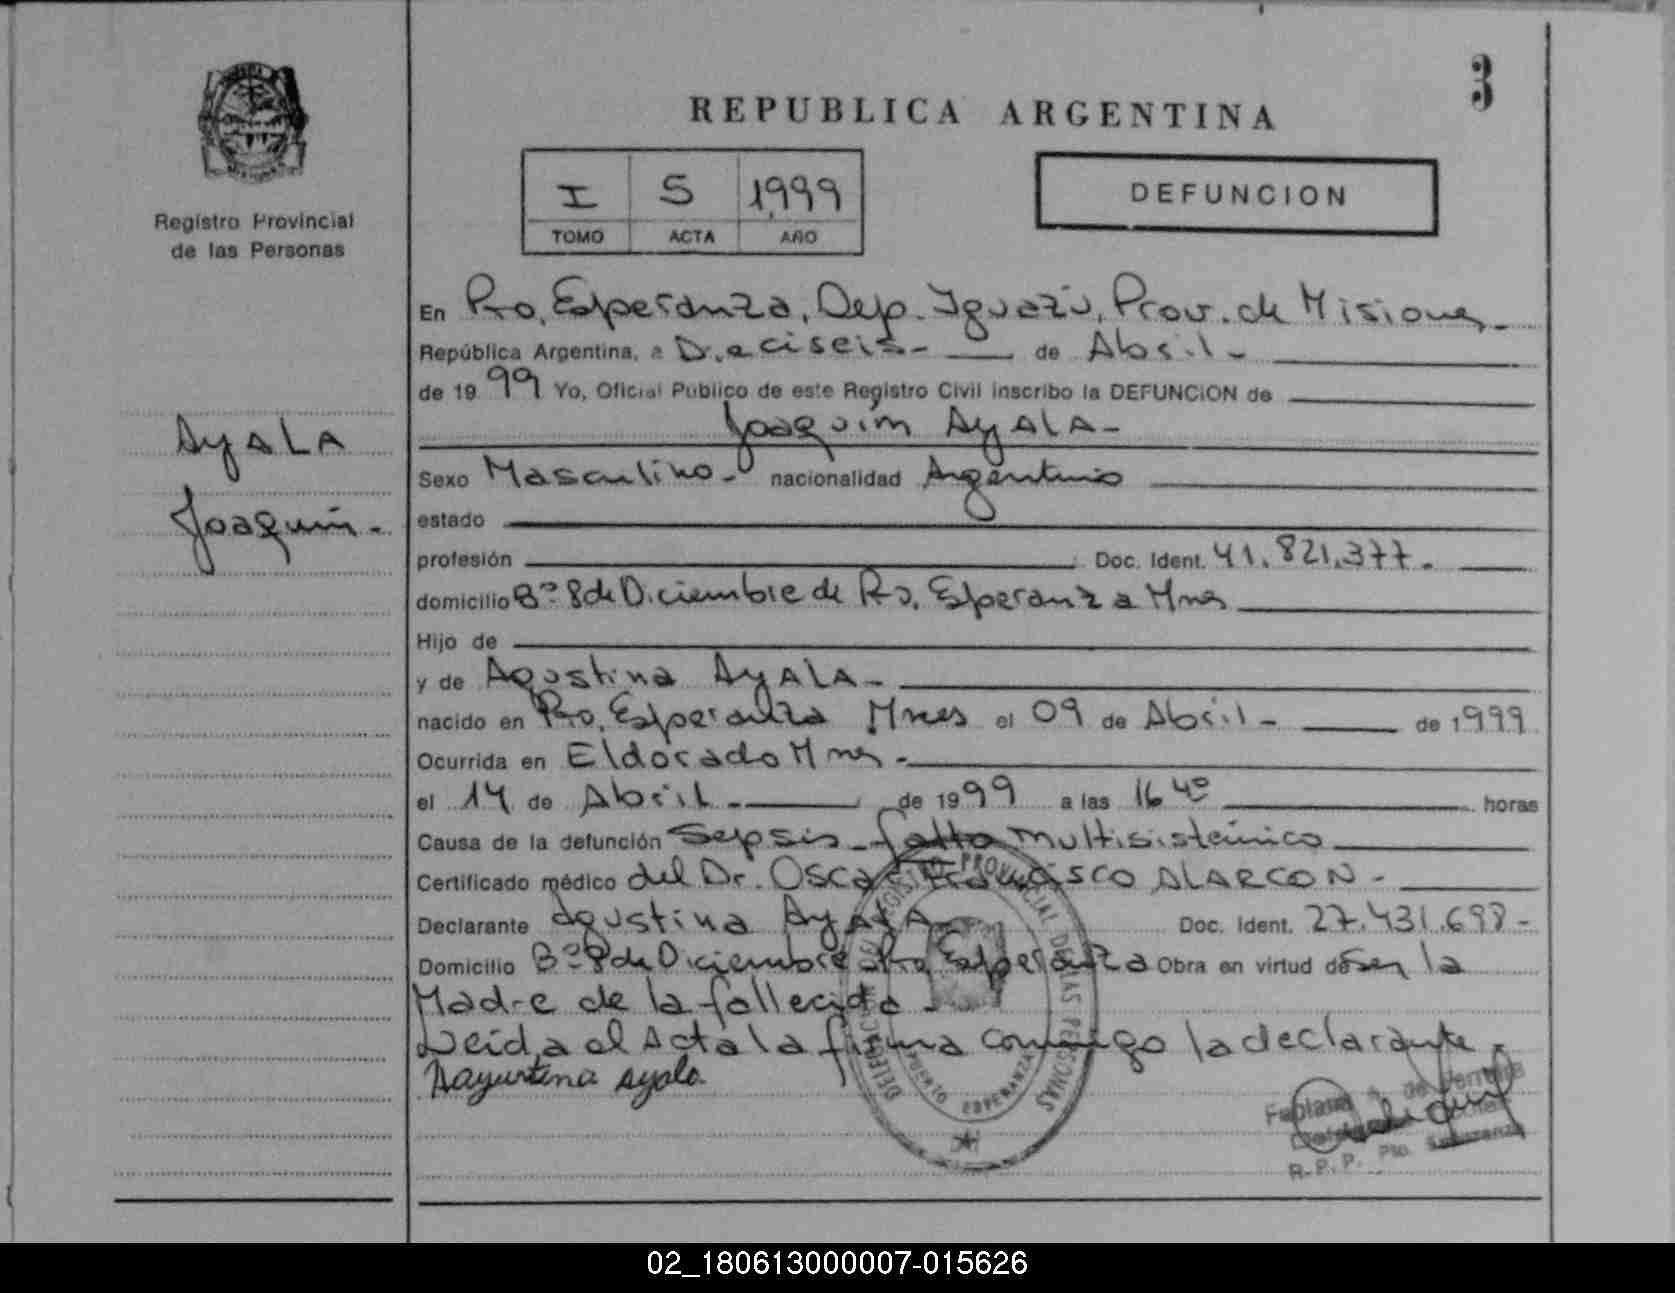 3
REPUBLICA ARGENTINA
I 5 1999
TOMO ACTA AÑO
DEFUNCION
Registro Provincial
de las Personas
AyALA
Joaquin.-
En Pto. Esperanza, Dep. Iguazú, Prov. de Misiones-
República Argentina, a Dieciseis- de Abril-
de 1999 Yo, Oficial Publico de este Registro Civil inscribo la DEFUNCION de
Joaquim AyALA-
Sexo Masculino- nacionalidad Argentino
estado
profesión Doc. Ident. 41.821.377.
domicilio Bº 8 de Diciembre de Pto. Esperanza Mnes
Hijo de
y de Agustina AyALA-
nacido en Pto. Esperanza Mnes el 09 de Abril- de 1999
Ocurrida en Eldorado Mnes-
el 14 de Abril- de 1999 a las 16 40 horas
Causa de la defunción Sepsis- fallo multisistémico
Certificado médico del Dr. Oscar Francisco ALARCON-
Declarante Agustina AyALA Doc. Ident. 27.431.698-
Domicilio Bº 8 de Diciembre Pto Esperanza Obra en virtud de Ser la
Madre de la fallecida-
Leida el Acta la firma conmigo la declarante
Ayala
REGISTRO PROVINCIAL DE LAS PERSONAS
PUERTO ESPERANZA
Fabiana de Ferreira
R.P.P. Pto. Esperanza
02_180613000007-015626